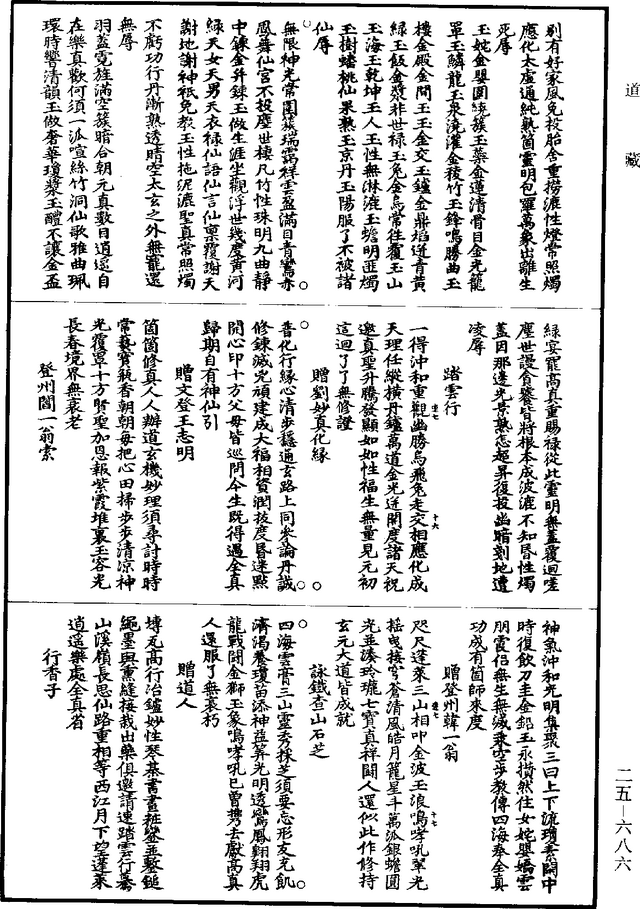 道藏
別有好家風免投胎舍重撈漉性燈常照燭
應化太虛通純熟箇靈明包羅萬象出離生
死辱
玉姹金嬰圓繞簇玉藥金蓮清骨目金光籠
罩玉鱗龍玉泉澆灌金稜竹玉鋒鳴勝曲玉
樓金殿金間玉玉金交玉鑪金鼎焰迸青黃
綠玉飯金漿非世祿玉兔金烏常往覆玉山
玉海玉乾坤玉人玉性無淋漉玉蟾明匪燭
玉樹蟠桃仙果熟玉京丹玉陽服了不被諸
仙辱
無限神光常圍簇瑞靄祥雲盈滿目青鸞赤
鳳舞仙宮不投塵世棲凡竹性珠明九曲靜
中鍊金并鍊玉做生涯坐觀浮世幾度黃河
綠天女天男天衣祿仙語仙言仙稟覆謝天
謝地謝神祇免教玉性拖泥漉聖真常照燭
不虧功行丹漸熟透晴空太玄之外無寵還
無辱
羽蓋霓旌滿空簇暗合朝元真數目逍遙自
在樂真歡何須一派喧絲竹洞仙歌雅曲珮
環時響清韻玉做奢華瓊漿玉醴不讓金盃
綠宴罷高真重賜祿從此靈明無蓋覆迴嗟
塵世謾貪饕皆將根本成波漉不知昏性燭
蓋因那邊光景熟怎超昇復投幽暗刻地遭
凌辱
踏雲行
一得沖和重觀幽勝烏飛兔走交相應化成
天理任縱橫丹鑪萬道金光迸開度諸天祝
邀真聖升騰發顯如如性福生無量見元初
這迴了了無修證
贈劉妙真化緣
普化行緣心清步穩通玄路上同參論丹誠
修鍊滅兇頑建成大福相資潤拔度昏迷點
開心印十方父母皆巡問今生既得遇全真
歸期自有神仙引
贈文登王志明
箇箇修真人人辦道玄機妙理須尋討時時
常爇寶瓶香朝朝每把心田掃步步清涼神
光覆罩十方賢聖加恩報紫霞堆裏玉容光
長春境界無衰老
登州閻一翁索
神氣沖和光明集聚三田上下流瓊素關中
時復飲刀圭金鉛玉汞攢然住姹女嬰嬌雲
朋霞侶無生無滅乘空步教傳四海奉全真
功成有箇師來度
贈登州韓一翁
咫尺蓬萊三山相叩金波玉浪鳴哮吼翠光
搖曳接穹蒼清風皓月籠星斗萬派銀蟾圓
光並湊玲瓏七寶真祥鬪人還似此作修持
玄元大道皆成就
詠鐵查山石芝
四海雲膏三山靈秀採芝須要忘形友充飢
濟渴養瓊苗添神益筭光明透鸞鳳翱翔虎
龍戰鬪金獅玉象鳴哮吼已曾攜去獻高真
人還服了無衰朽
贈道人
塼瓦高行冶鑪妙性琴碁書畫粧鑾並鑿鎚
繩墨與熏縫接裁出藥俱邀請速踏雲行驀
山溪嶺長思仙路重相等西江月下望蓬萊
逍遙樂處全真省
行香子
二五—六八六